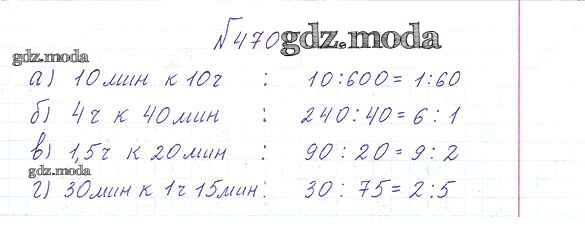 №470 gdz.moda
gdz.moda
а) 10мин к 10ч : 10:600=1:60
б) 4ч к 40мин : 240:40=6:1
в) 1,5ч к 20мин : 90:20=9:2
gdz.moda
г) 30мин к 1ч 15мин: 30:75=2:5